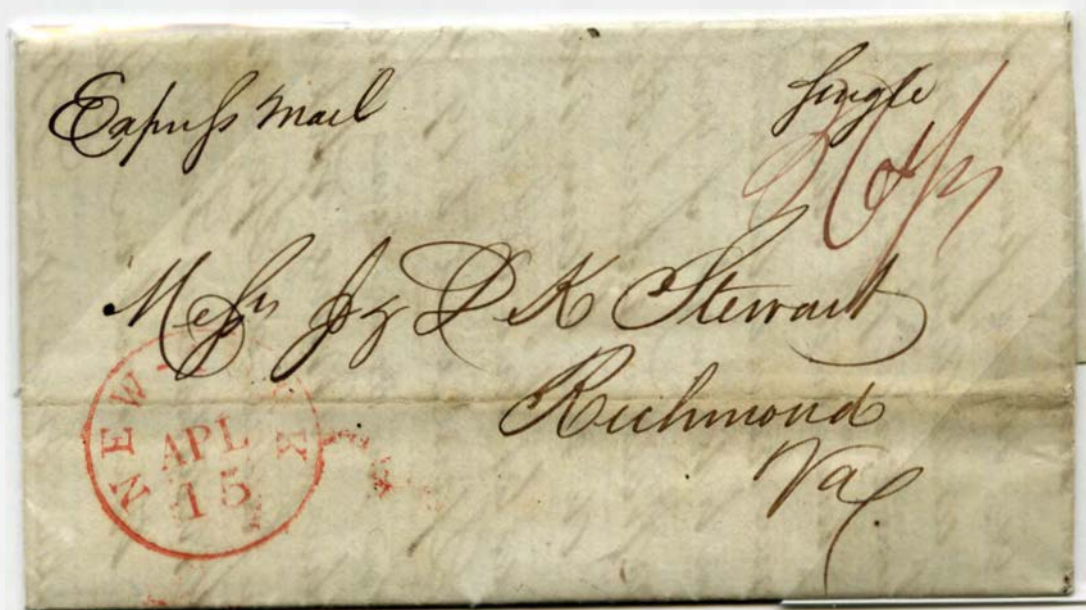 Express Mail
Single
Messrs J & D K Stewart
Richmond
Va
NEW YORK
APL
15